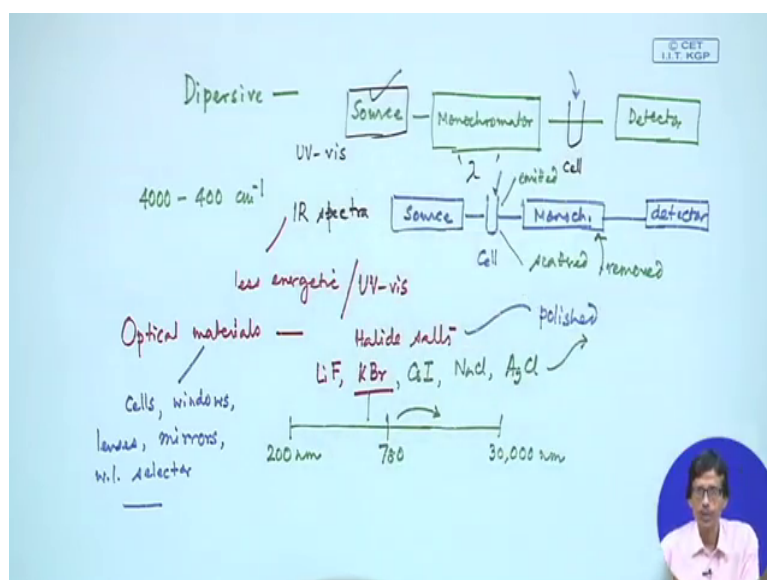 © CET
I.I.T. KGP
Dipersive — Source Monochromator Detector
UV-vis λ Cell
emitted
4000 - 400 cm⁻¹ IR spectra Source Monoch. detector
Cell scattered removed
less energetic / UV-vis
Optical materials — Halide salts polished
LiF, KBr, CsI, NaCl, AgCl
Cells, windows,
lenses, mirrors,
w.l. selector
200 nm 780 30,000 nm